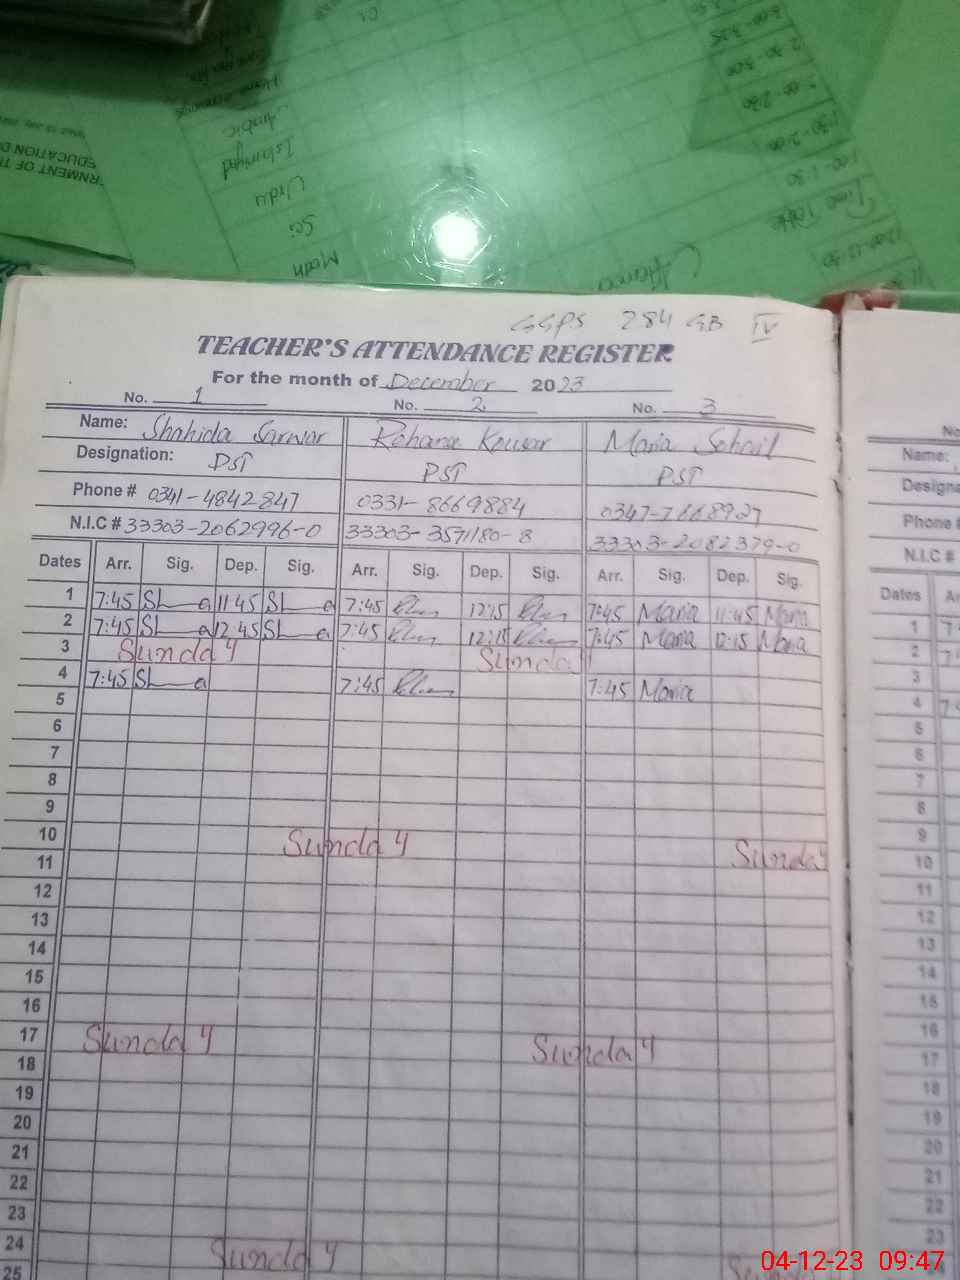 Math
Sci
Urdu
Islamiyat
Arabic
Time Table
EDUCATION D
GGPS 284 GB IV
TEACHER'S ATTENDANCE REGISTER
For the month of December 2023
No. 1 No. 2 No. 3
Name: Shahida Sarwar Rehana Kowsar Maria Sohail
Designation: PST PST PST
Phone # 0341-4842847 0331-8669884 0347-7668927
N.I.C # 33303-2062996-0 33303-3571180-8 33303-2082379-0
Dates Arr. Sig. Dep. Sig. Arr. Sig. Dep. Sig. Arr. Sig. Dep. Sig.
1 7:45 11:45 7:45 12:15 7:45 Maria 11:45 Maria
2 7:45 12:45 7:45 12:15 7:45 Maria 12:15 Maria
3 Sunday Sunday
4 7:45 7:45 7:45 Maria
5
6
7
8
9
10 Sunday Sunday
11
12
13
14
15
16
17 Sunday Sunday
18
19
20
21
22
23
24 Sunday
25
Name:
Designa
Phone #
N.I.C #
Dates
1
2
3
4
5
6
7
8
9
10
11
12
13
14
15
16
17
18
19
20
21
22
23
04-12-23 09:47